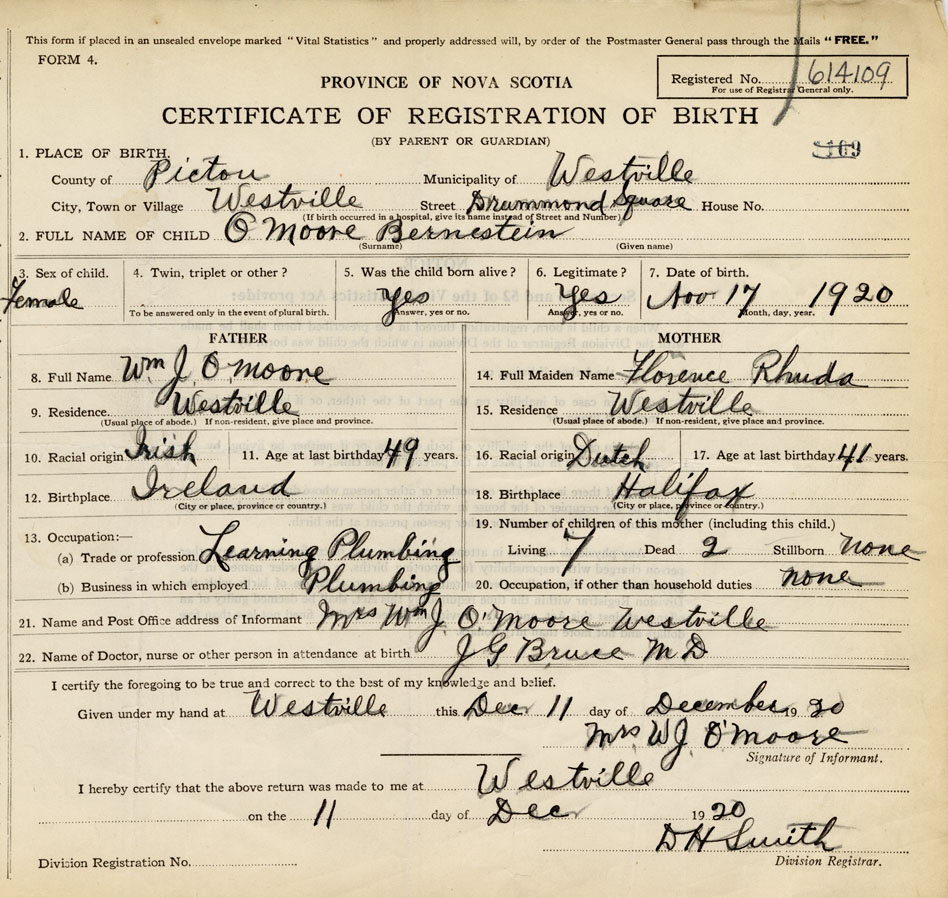 This form if placed in an unsealed envelope marked "Vital Statistics" and properly addressed will, by order of the Postmaster General pass through the Mails "FREE."
FORM 4.
Registered No. 614109
For use of Registrar General only.
PROVINCE OF NOVA SCOTIA
CERTIFICATE OF REGISTRATION OF BIRTH
(BY PARENT OR GUARDIAN)
1. PLACE OF BIRTH.
County of Pictou Municipality of Westville
City, Town or Village Westville Street Drummond Square House No.
(If birth occurred in a hospital, give its name instead of Street and Number)
2. FULL NAME OF CHILD O'Moore Bernestein
(Surname) (Given name)
3. Sex of child. 4. Twin, triplet or other ? 5. Was the child born alive ? 6. Legitimate ? 7. Date of birth.
Female Yes Yes Nov 17 1920
To be answered only in the event of plural birth. Answer, yes or no. Answer, yes or no. Month, day, year.
FATHER
8. Full Name Wm J. O'Moore
9. Residence. Westville
(Usual place of abode.) If non-resident, give place and province.
10. Racial origin Irish 11. Age at last birthday 49 years.
12. Birthplace Ireland
(City or place, province or country.)
13. Occupation:—
(a) Trade or profession Learning Plumbing
(b) Business in which employed Plumbing
MOTHER
14. Full Maiden Name Florence Rhuda
15. Residence Westville
(Usual place of abode.) If non-resident, give place and province.
16. Racial origin Dutch 17. Age at last birthday 41 years.
18. Birthplace Halifax
(City or place, province or country.)
19. Number of children of this mother (including this child.)
Living 7 Dead 2 Stillborn none
20. Occupation, if other than household duties none
21. Name and Post Office address of Informant Mrs Wm J. O'Moore Westville
22. Name of Doctor, nurse or other person in attendance at birth J G Bruce M D
I certify the foregoing to be true and correct to the best of my knowledge and belief.
Given under my hand at Westville this Dec 11 day of December 1920
Mrs W J. O'Moore
Signature of Informant.
I hereby certify that the above return was made to me at Westville
on the 11 day of Dec 1920
D H Smith
Division Registrar.
Division Registration No.